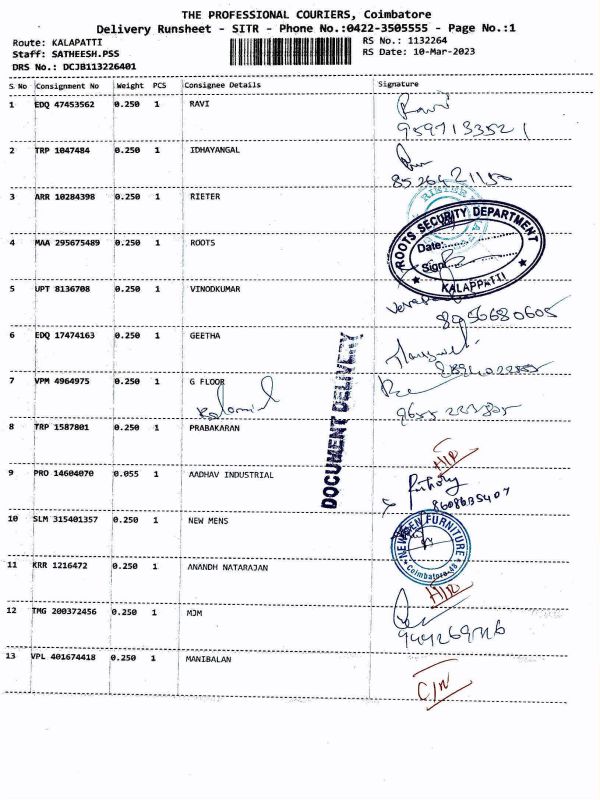 THE PROFESSIONAL COURIERS, Coimbatore
Delivery Runsheet - SITR - Phone No.:0422-3505555 - Page No.:1
Route: KALAPATTI
RS No.: 1132264
Staff: SATHEESH.PSS
RS Date: 10-Mar-2023
DRS No.: DCJB113226401
S No Consignment No Weight PCS Consignee Details Signature
1 EDQ 47453562 0.250 1 RAVI Ravi
9597133521
2 TRP 1047484 0.250 1 IDHAYANGAL
3 ARR 10284398 0.250 1 RIETER
RIETER
4 MAA 295675489 0.250 1 ROOTS
ROOTS SECURITY DEPARTMENT
Date:
Sign
KALAPPATTI
5 UPT 8136708 0.250 1 VINODKUMAR
8056680605
6 EDQ 17474163 0.250 1 GEETHA
7 VPM 4964975 0.250 1 G FLOOR
DOCUMENT DELIVERY
8 TRP 1587801 0.250 1 PRABAKARAN
H/R
9 PRO 14604070 0.055 1 AADHAV INDUSTRIAL
8608635407
10 SLM 315401357 0.250 1 NEW MENS
FURNITURE
Coimbatore-48
11 KRR 1216472 0.250 1 ANANDH NATARAJAN
H/R
12 TMG 200372456 0.250 1 MJM
13 VPL 401674418 0.250 1 MANIBALAN
C/N